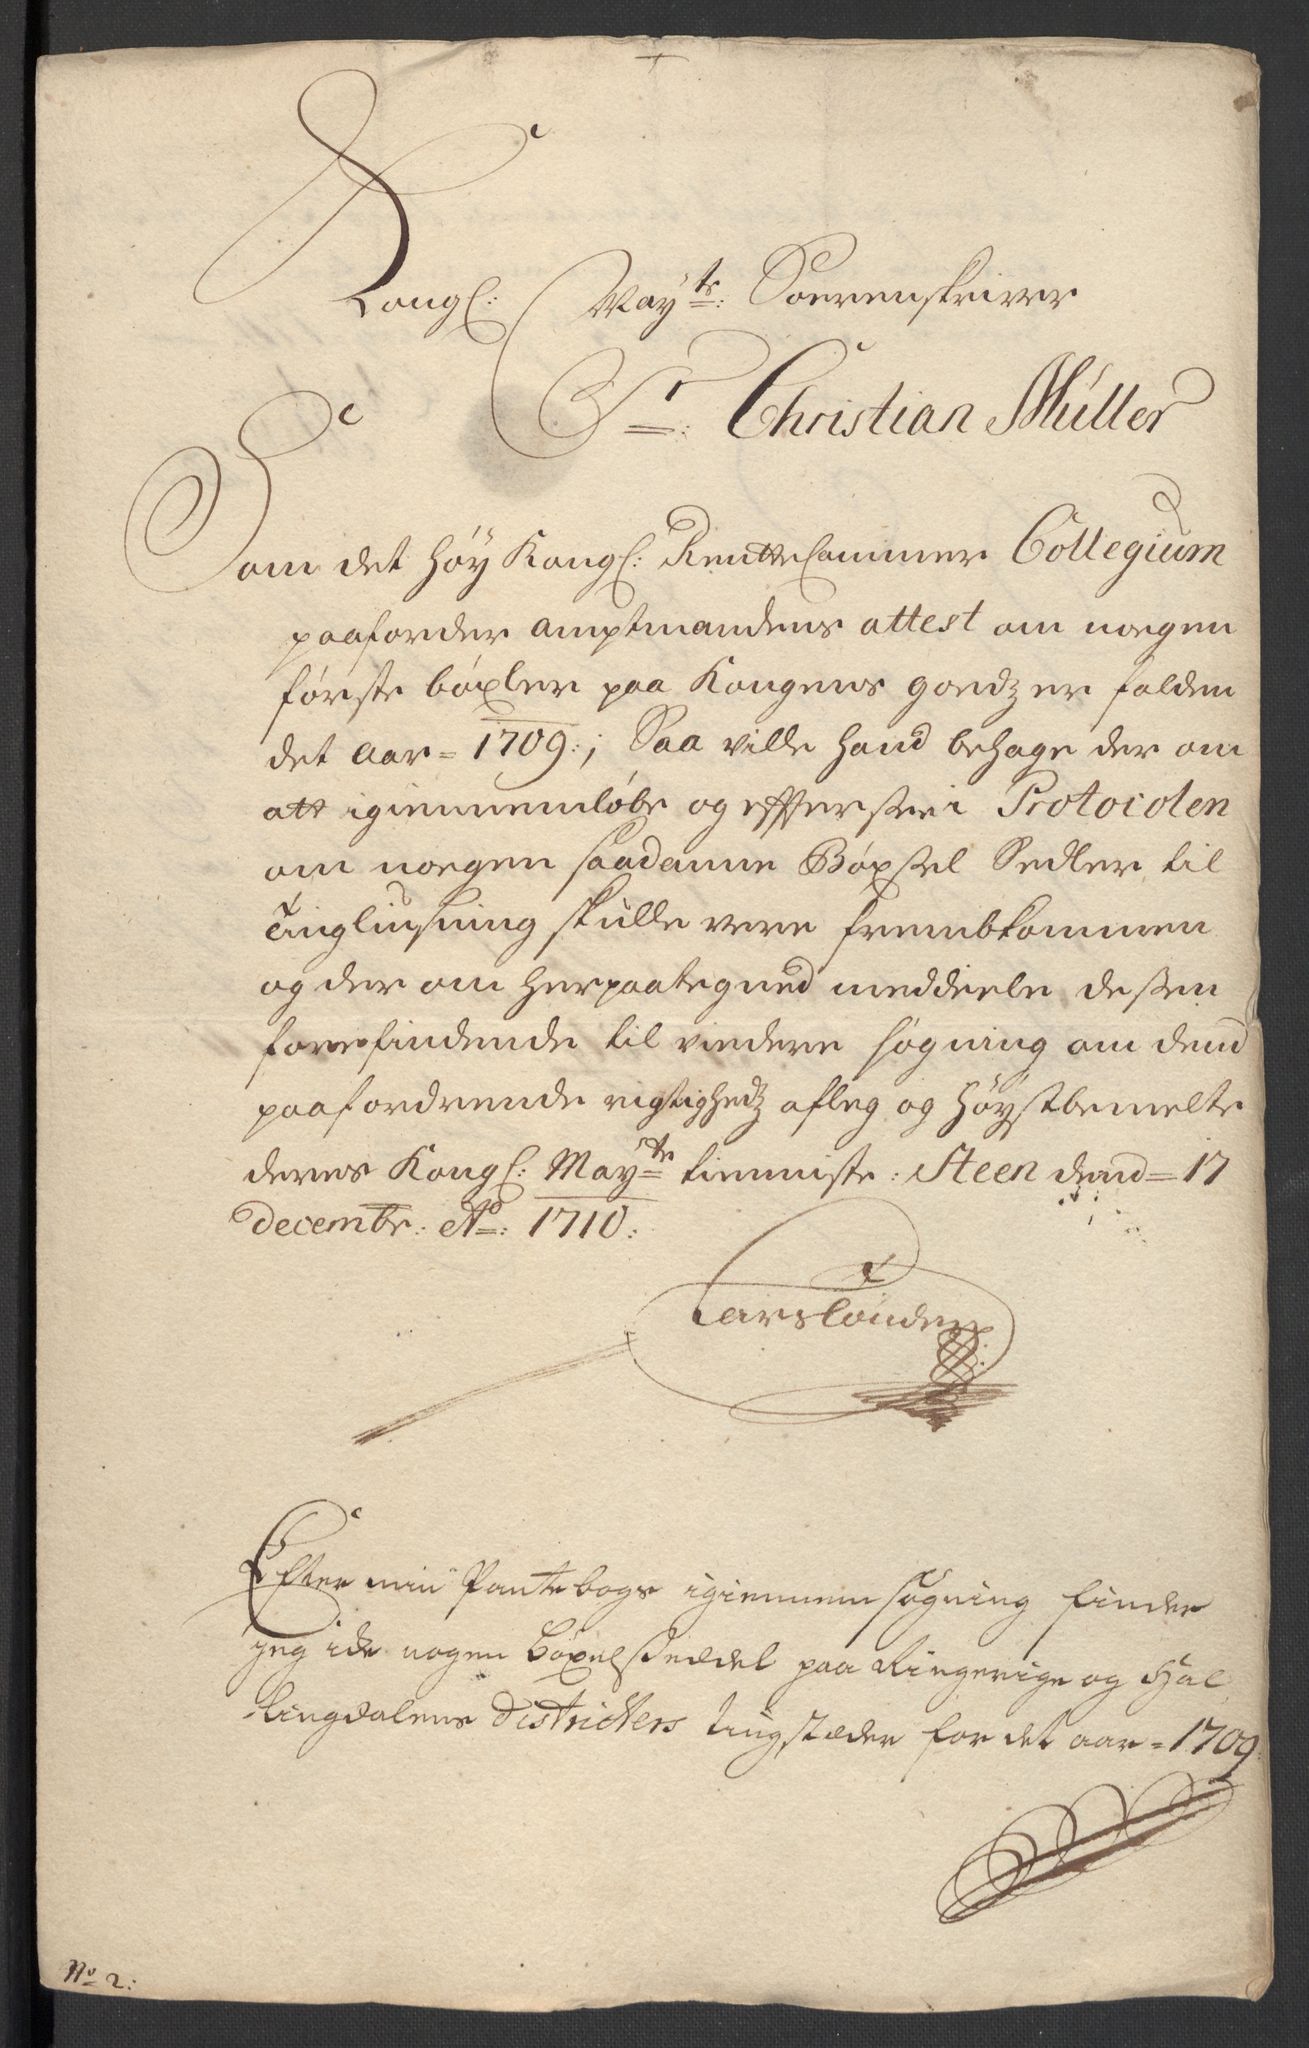 Kongl: May^ts: Sorrenskriver
S^r: Christian Müller
Som det høy Kongl: RentteCammer Collegium
paaforder amptmandens attest om nogen
første bøxler paa Kongens goedz er falden
det aar = 1709:; Saa ville hand behage der om
att igiennemløbe og effterssee i Protocolen
om noegen saadanne Bøxsel Sedler til
Tinglüsning skulle vere frembkommen
og der om herpaategned meddeele dessen
forrefindende til viedere søgning om dend
paafordrende rigtighedz afleg og Høystbemelte
deres Kongl: May^ts tienniste: Steen dend = 17
decembr: A^o: 1710:
Lars Tønder
Efter min Pantebogs igiennemsøgning finder
jeg icke nogen böxelsedel paa Ringerige og Hal
lingdalens districters tingstæder for det aar = 1709
N^o 2: